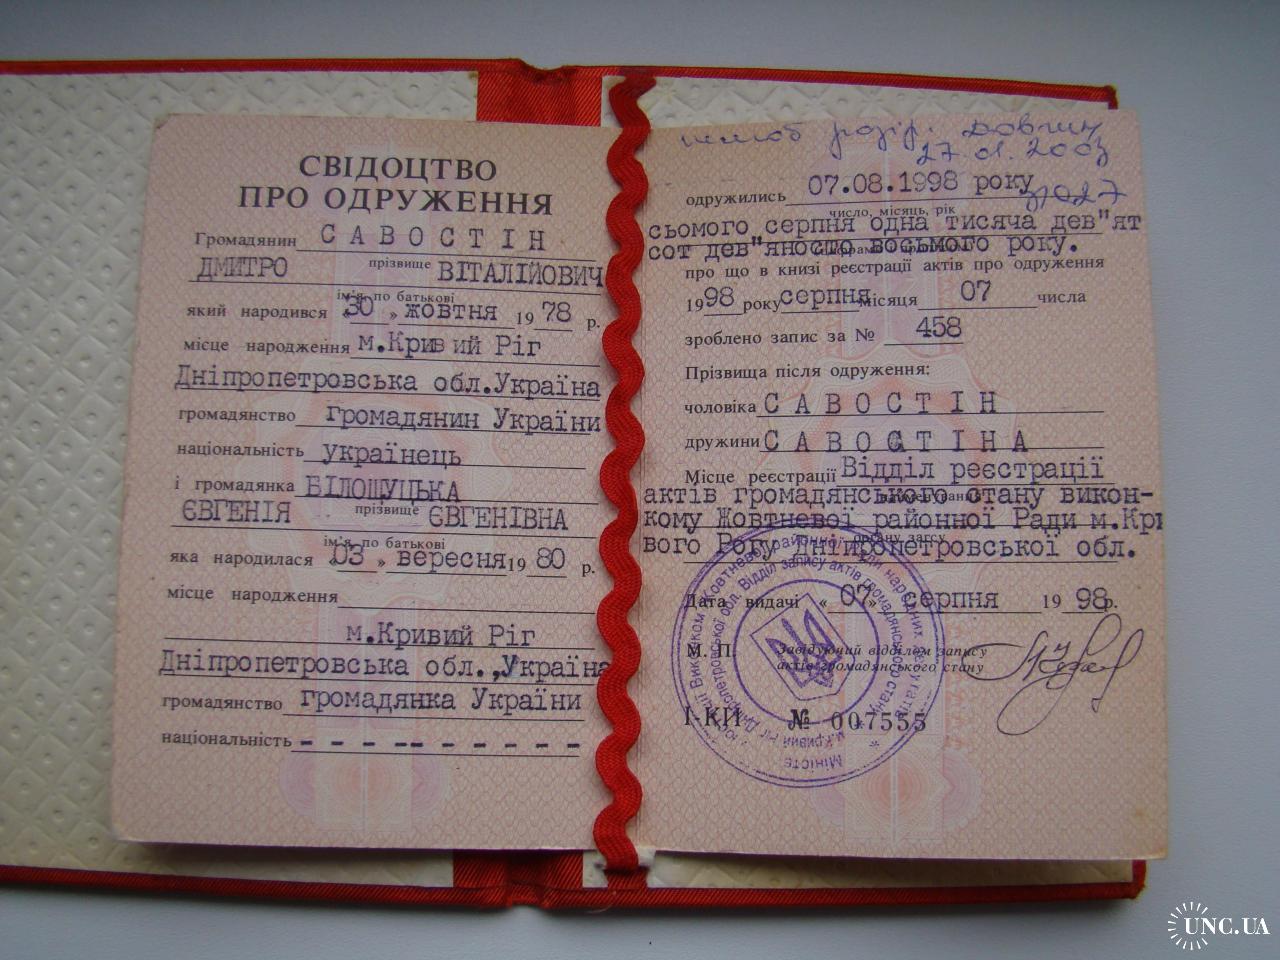 СВІДОЦТВО
ПРО ОДРУЖЕННЯ
Громадянин САВОСТІН
прізвище
ДМИТРО ВІТАЛІЙОВИЧ
ім'я по батькові
який народився "30" жовтня 1978 р.
місце народження м.Кривий Ріг
Дніпропетровська обл.Україна
громадянство громадянин України
національність українець
і громадянка БІЛОЩУЦЬКА
прізвище
ЄВГЕНІЯ ЄВГЕНІВНА
ім'я по батькові
яка народилася "03" вересня 1980 р.
місце народження
м.Кривий Ріг
Дніпропетровська обл.,Україна
громадянство громадянка України
національність - - - - - - - - - -
27.01.2003
одружились 07.08.1998 року
число, місяць, рік
сьомого серпня одна тисяча дев"ят
сот дев"яносто восьмого року.
про що в книзі реєстрації актів про одруження
1998 року серпня місяця 07 числа
зроблено запис за № 458
Прізвища після одруження:
чоловіка САВОСТІН
дружини САВОСТІНА
Місце реєстрації Відділ реєстрації
актів громадянського стану викон-
кому Жовтневої районної Ради м.Кри
вого Рогу Дніпропетровської обл.
органу загсу
Дата видачі «07» серпня 1998р.
М. П. Завідуючий відділом запису
актів громадянського стану
І-КИ № 007555
UNC.UA